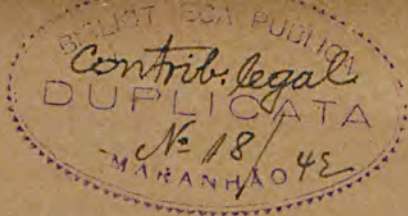 BIBLIOTECA PUBLICA
Contrib. legal
DUPLICATA
Nº 18/42
MARANHÃO